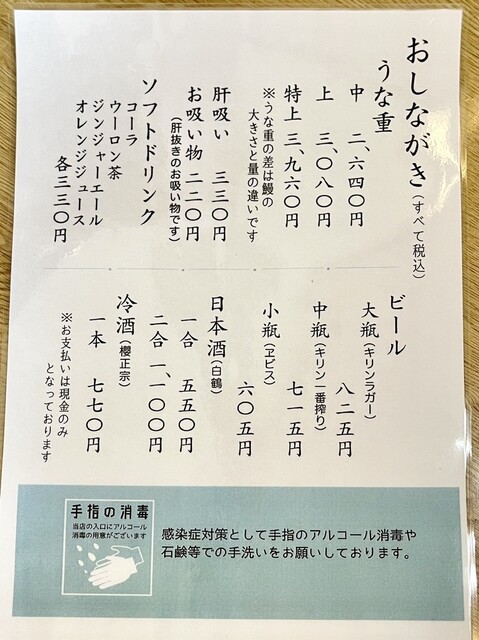 おしながき(すべて税込)
うな重
中 二、六四〇円
上 三、〇八〇円
特上 三、九六〇円
※うな重の差は鰻の
大きさと量の違いです
肝吸い 三三〇円
お吸い物 二二〇円
(肝抜きのお吸い物です)
ソフトドリンク
コーラ
ウーロン茶
ジンジャーエール
オレンジジュース
各三三〇円
ビール
大瓶(キリンラガー)
八二五円
中瓶(キリン一番搾り)
七一五円
小瓶(ヱビス)
六〇五円
日本酒(白鶴)
一合 五五〇円
二合 一、一〇〇円
冷酒(櫻正宗)
一本 七七〇円
※お支払いは現金のみ
となっております
手指の消毒
当店の入口にアルコール
消毒の用意がございます
感染症対策として手指のアルコール消毒や
石鹸等での手洗いをお願いしております。